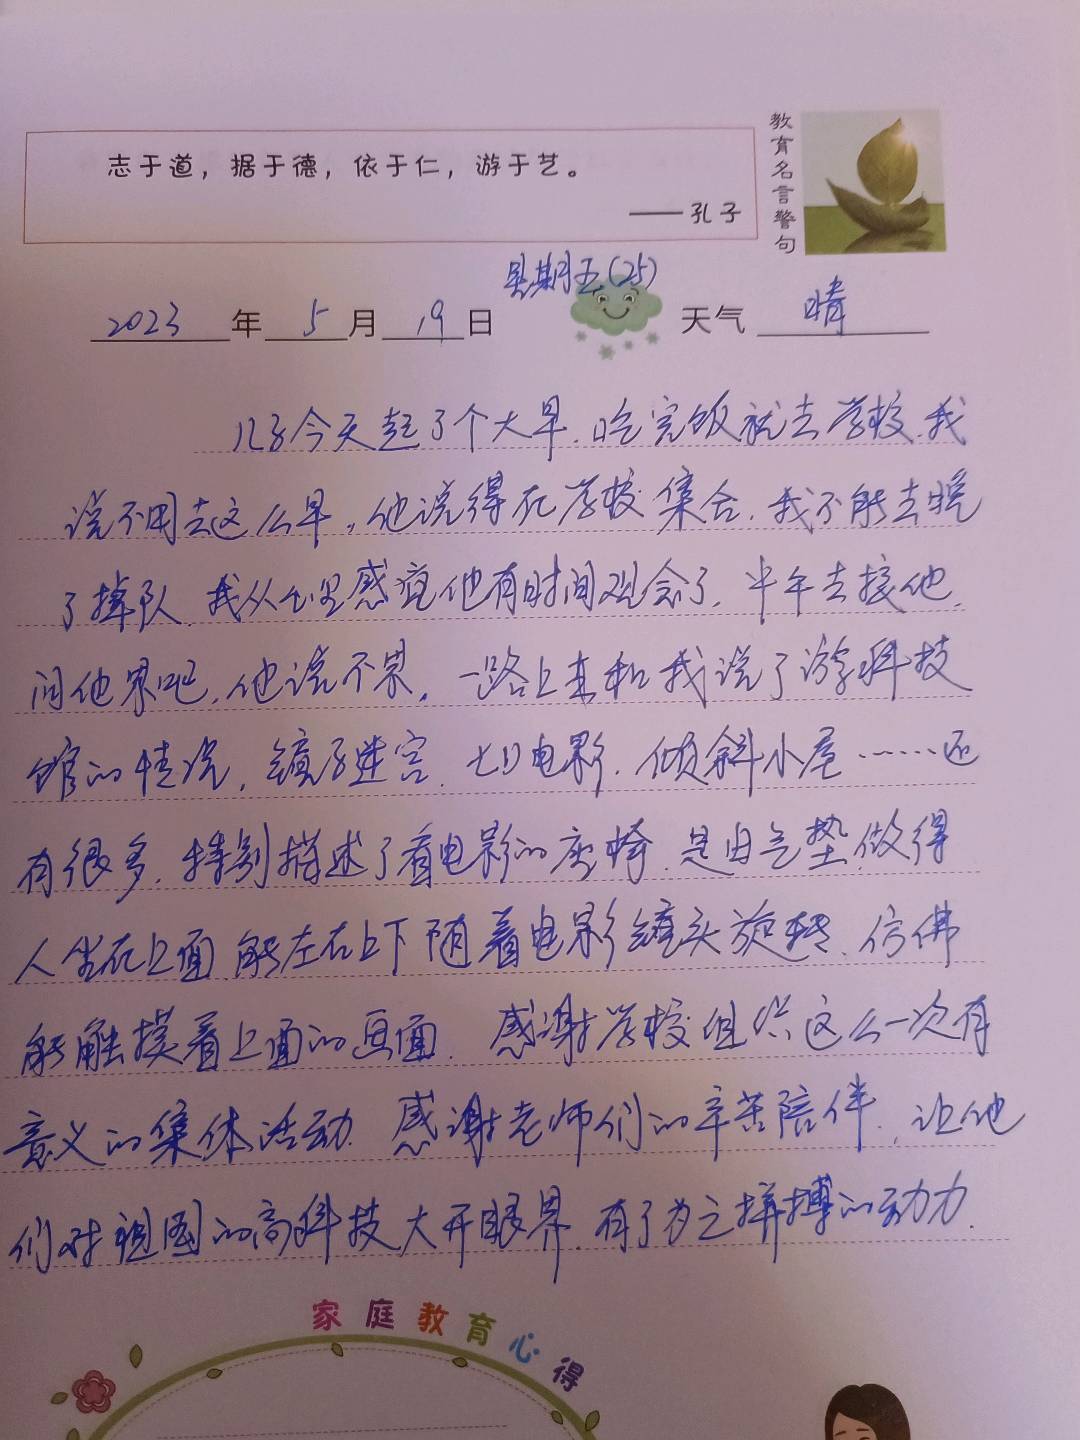 教育名言警句
志于道，据于德，依于仁，游于艺。
——孔子
星期五(25)
2023年 5月 19日 天气 晴
儿子今天起了个大早.吃完饭就去学校.我
说不用去这么早。他说得在学校集合.我不能去晚
了掉队.我从心里感觉他有时间观念了.中午去接他.
问他累吧.他说不累。一路上来和我说了游科技
馆的情况，镜子迷宫.七D电影.倾斜小屋……还
有很多.特别描述了看电影的座椅.是由气垫做得
人坐在上面.能左右上下随着电影镜头旋转.仿佛
能触摸着上面的画面.感谢学校组织这么一次有
意义的集体活动.感谢老师们的辛苦陪伴.，让他
们对祖国的高科技大开眼界.有了为之拼搏的动力.
家庭教育心得